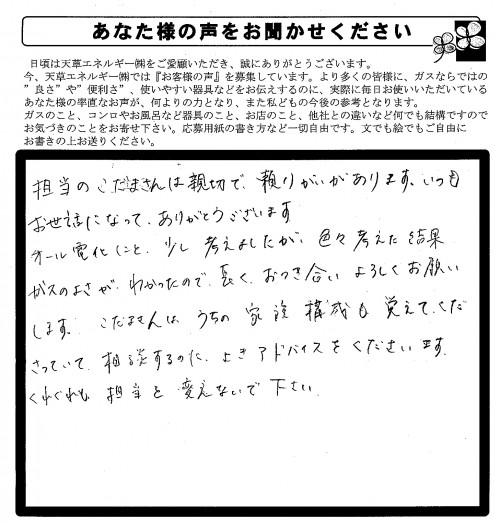 あなた様の声をお聞かせください
日頃は天草エネルギー㈱をご愛顧いただき、誠にありがとうございます。
今、天草エネルギー㈱では『お客様の声』を募集しています。より多くの皆様に、ガスならではの
”良さ”や”便利さ”、使いやすい器具などをお伝えするのに、実際に毎日お使いいただいている
あなた様の率直なお声が、何よりの力となり、また私どもの今後の参考となります。
ガスのこと、コンロやお風呂など器具のこと、お店のこと、他社との違いなど何でも結構ですので
お気づきのことをお寄せ下さい。応募用紙の書き方など一切自由です。文でも絵でもご自由に
お書きの上お送りください。
担当のこだまさんは親切で、頼りがいがあります。いつも
お世話になって、ありがとうございます
オール電化にと、少し考えましたが、色々考えた結果
ガスのよさが、わかったので、長く、おつき合いよろしくお願い
します。こだまさんは、うちの家族構成も覚えてくだ
さっていて、相談するのに、よきアドバイスをくださいます。
くれぐれも、担当を変えないで下さい。